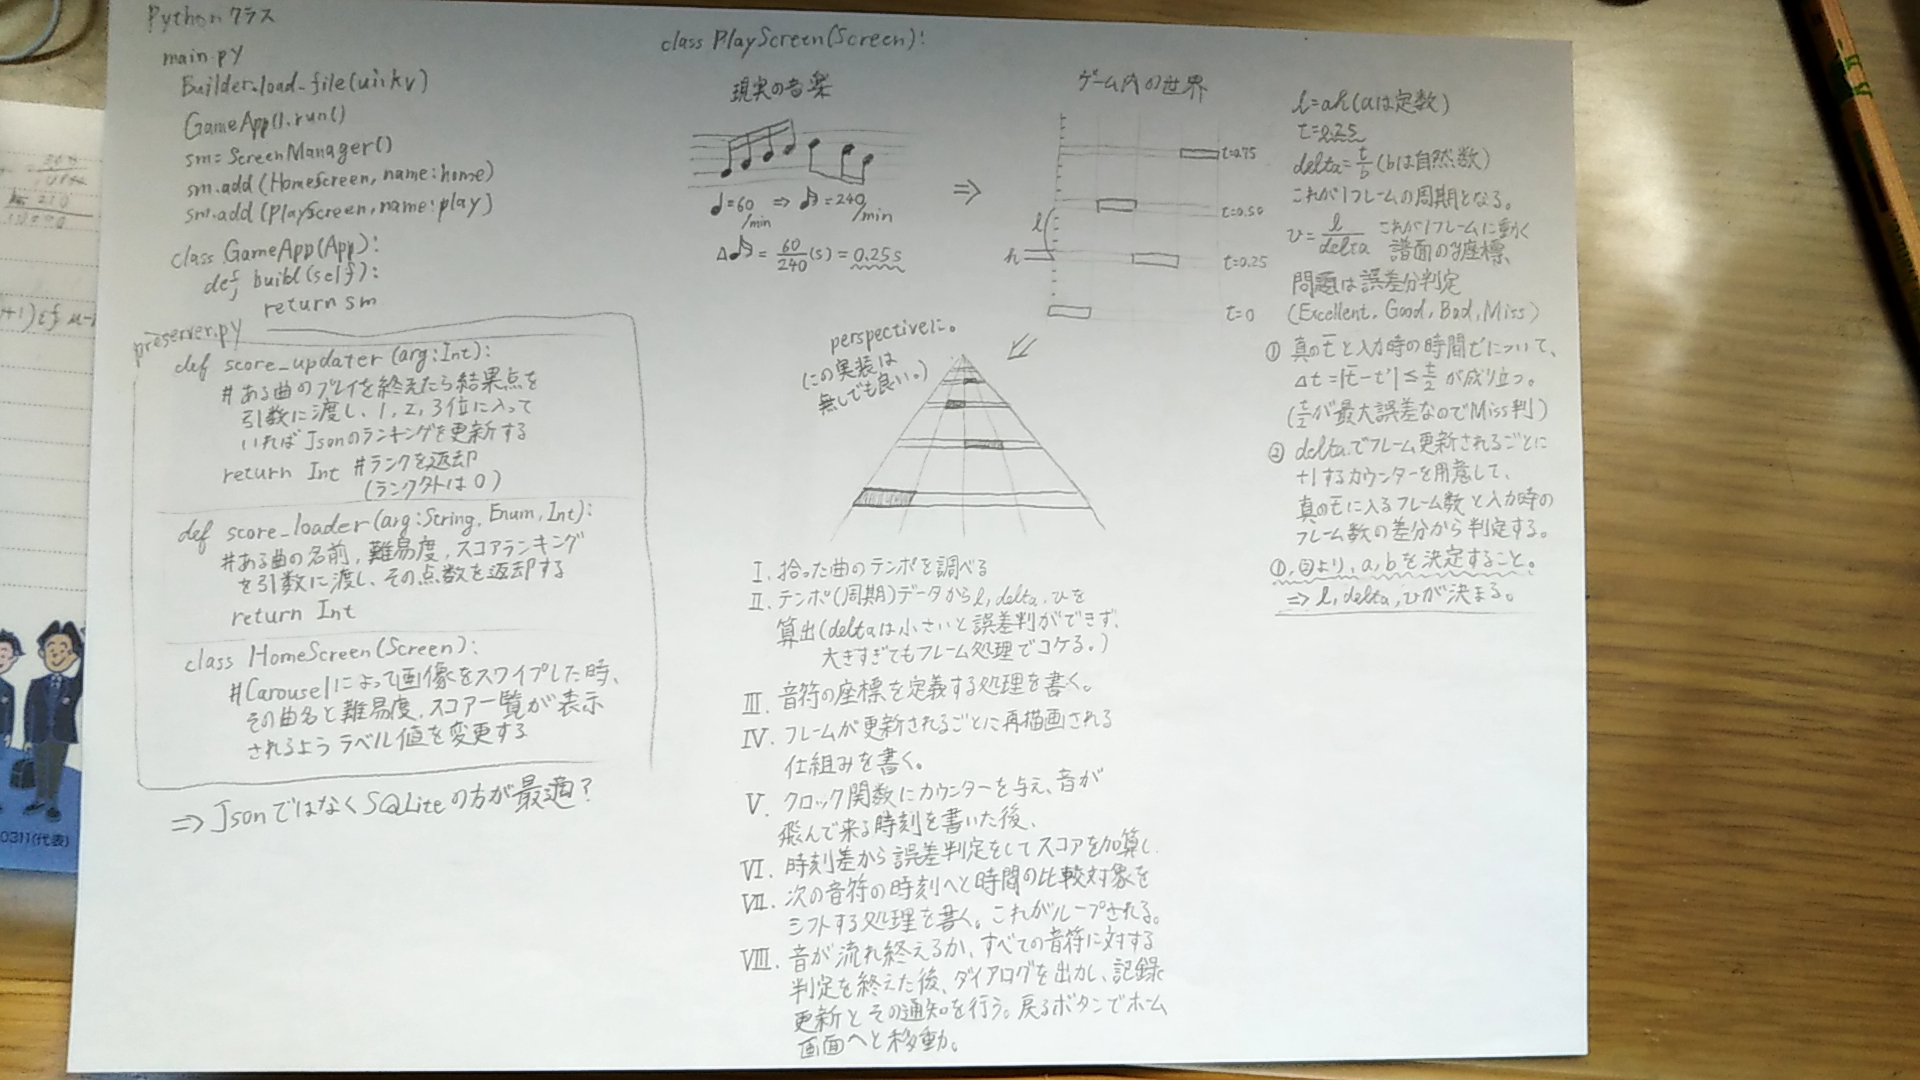 Pythonクラス
main.py
Builder.load_file(ui.kv)
GameApp().run()
sm=ScreenManager()
sm.add(HomeScreen, name:home)
sm.add(PlayScreen, name:play)
class GameApp(App):
def build(self):
return sm
preserver.py
def score_updater(arg:Int):
#ある曲のプレイを終えたら結果点を
引数に渡し、1,2,3位に入って
いればJsonのランキングを更新する
return Int #ランクを返却
(ランク外は0)
def score_loader(arg:String, Enum, Int):
#ある曲の名前,難易度,スコアランキング
を引数に渡し、その点数を返却する
return Int
class HomeScreen(Screen):
#Carouselによって画像をスワイプした時、
その曲名と難易度,スコア一覧が表示
されるようラベル値を変更する
⇒JsonではなくSQLiteの方が最適?
class PlayScreen(Screen):
現実の音楽
♩=60/min ⇒ ♬=240/min
Δ♬=60/240(s)=0.25s
⇒
ゲーム内の世界
t=0.75
t=0.50
l
h
t=0.25
t=0
perspectiveに。
(この実装は
無しでも良い。)
I. 拾った曲のテンポを調べる
II. テンポ(周期)データからl, delta, vを
算出(deltaは小さいと誤差判ができず、
大きすぎてもフレーム処理でコケる。)
III. 音符の座標を定義する処理を書く。
IV. フレームが更新されるごとに再描画される
仕組みを書く。
V. クロック関数にカウンターを与え、音が
飛んで来る時刻を書いた後、
VI. 時刻差から誤差判定をしてスコアを加算し、
VII. 次の音符の時刻へと時間の比較対象を
シフトする処理を書く。これがループされる。
VIII. 音が流れ終えるか、すべての音符に対する
判定を終えた後、ダイアログを出かし、記録
更新とその通知を行う。戻るボタンでホーム
画面へと移動。
l=ah(aは定数)
t=0.25
delta=t/b(bは自然数)
これが1フレームの周期となる。
v=l/delta これが1フレームに動く
譜面のy座標、
問題は誤差分判定
(Excellent, Good, Bad, Miss)
① 真のtと入力時の時間t'について、
Δt=|t-t'|≤t/2が成り立つ。
(t/2が最大誤差なのでMiss判)
② deltaでフレーム更新されるごとに
+1するカウンターを用意して、
真のtに入るフレーム数と入力時の
フレーム数の差分から判定する。
①,②より、a,bを決定すること。
⇒l, delta, vが決まる。
0311(代表)